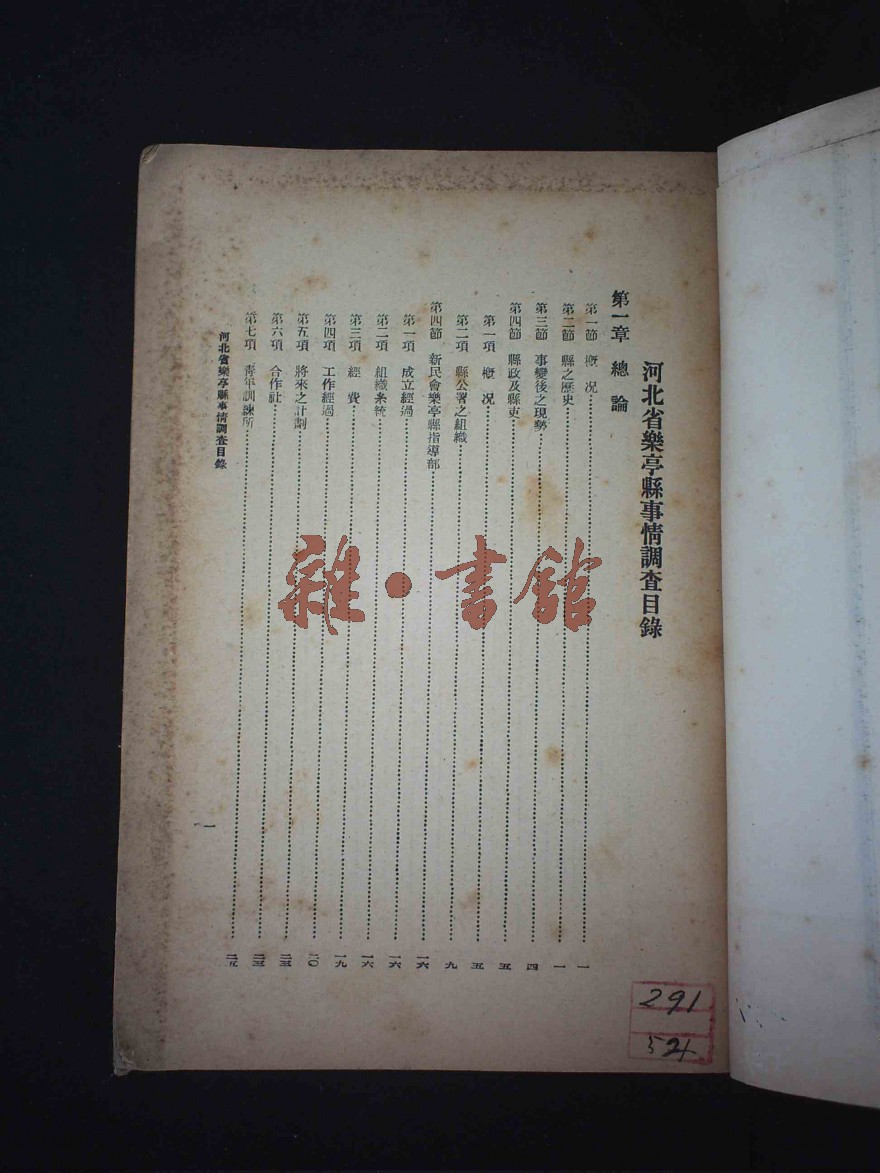 河北省樂亭縣事情調查目錄
第一章 總論
第一節 概況……一
第二節 縣之歷史……一
第三節 事變後之現勢……四
第四節 縣政及縣吏……五
第一項 概況……五
第二項 縣公署之組織……九
第四節 新民會樂亭縣指導部……一六
第一項 成立經過……一六
第二項 組織系統……一六
第三項 經費……一九
第四項 工作經過……二〇
第五項 將來之計劃……二三
第六項 合作社……二三
第七項 青年訓練所……二五
河北省樂亭縣事情調查目錄
一
雜·書館
291
52